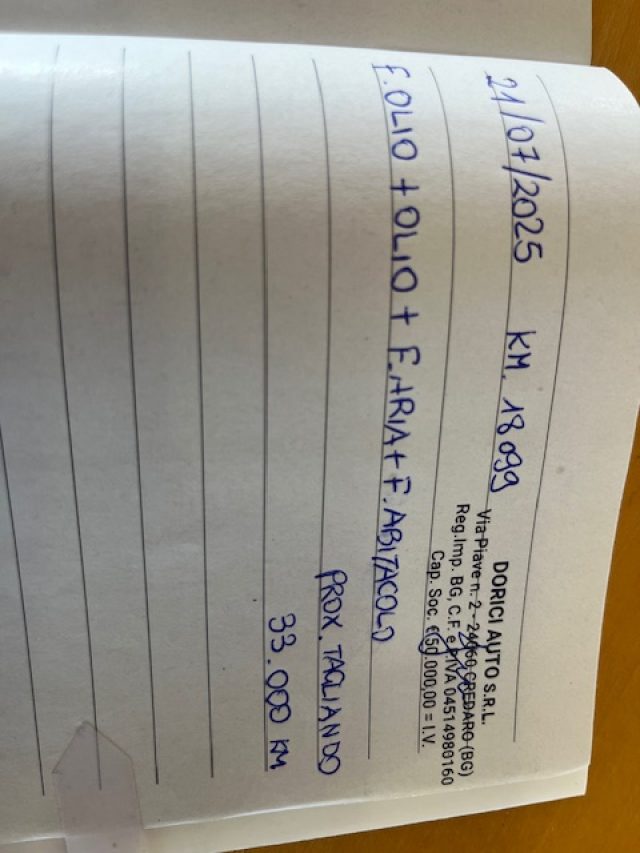 21/07/2025 KM. 18099
DORICI AUTO S.R.L.
Via Piave n. 2 - 24060 CREDARO (BG)
Reg.Imp. BG, C.F. e P.IVA 04514980160
Cap. Soc. €150.000,00 = I.V.
F.OLIO + OLIO + F.ARIA + F.ABITACOLO
PROX. TAGLIANDO
33.000 KM